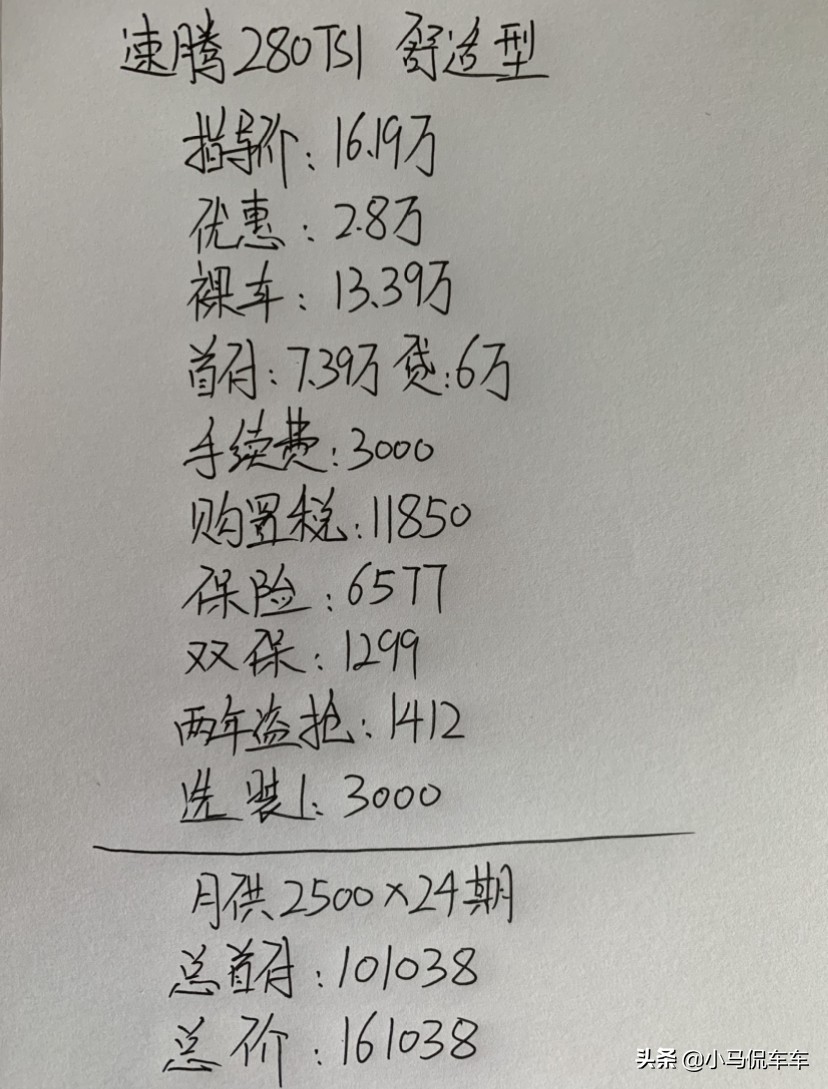 速腾280TSI 舒适型
指导价：16.19万
优惠：2.8万
裸车：13.39万
首付：7.39万 贷：6万
手续费：3000
购置税：11850
保险：6577
双保：1299
两年盗抢：1412
选装1：3000
月供2500×24期
总首付：101038
总价：161038
头条 @小马侃车车